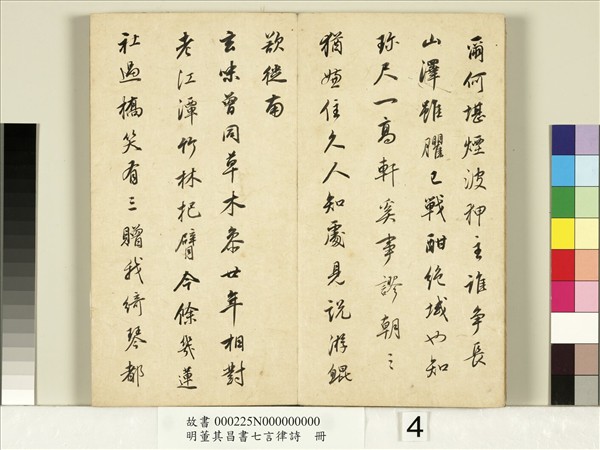 爾何堪煙波狎主誰爭長
山澤雖臞已戰酣絕域也知
珎尺一高軒奚事謬朝〻
猶嫌住久人知處見說游鯤
欲從南
玄味曾同草木參廿年相對
老江潭竹林把臂今餘幾蓮
社過橋笑有三贈我綺琴都
故書 000225N000000000
明董其昌書七言律詩 冊
4